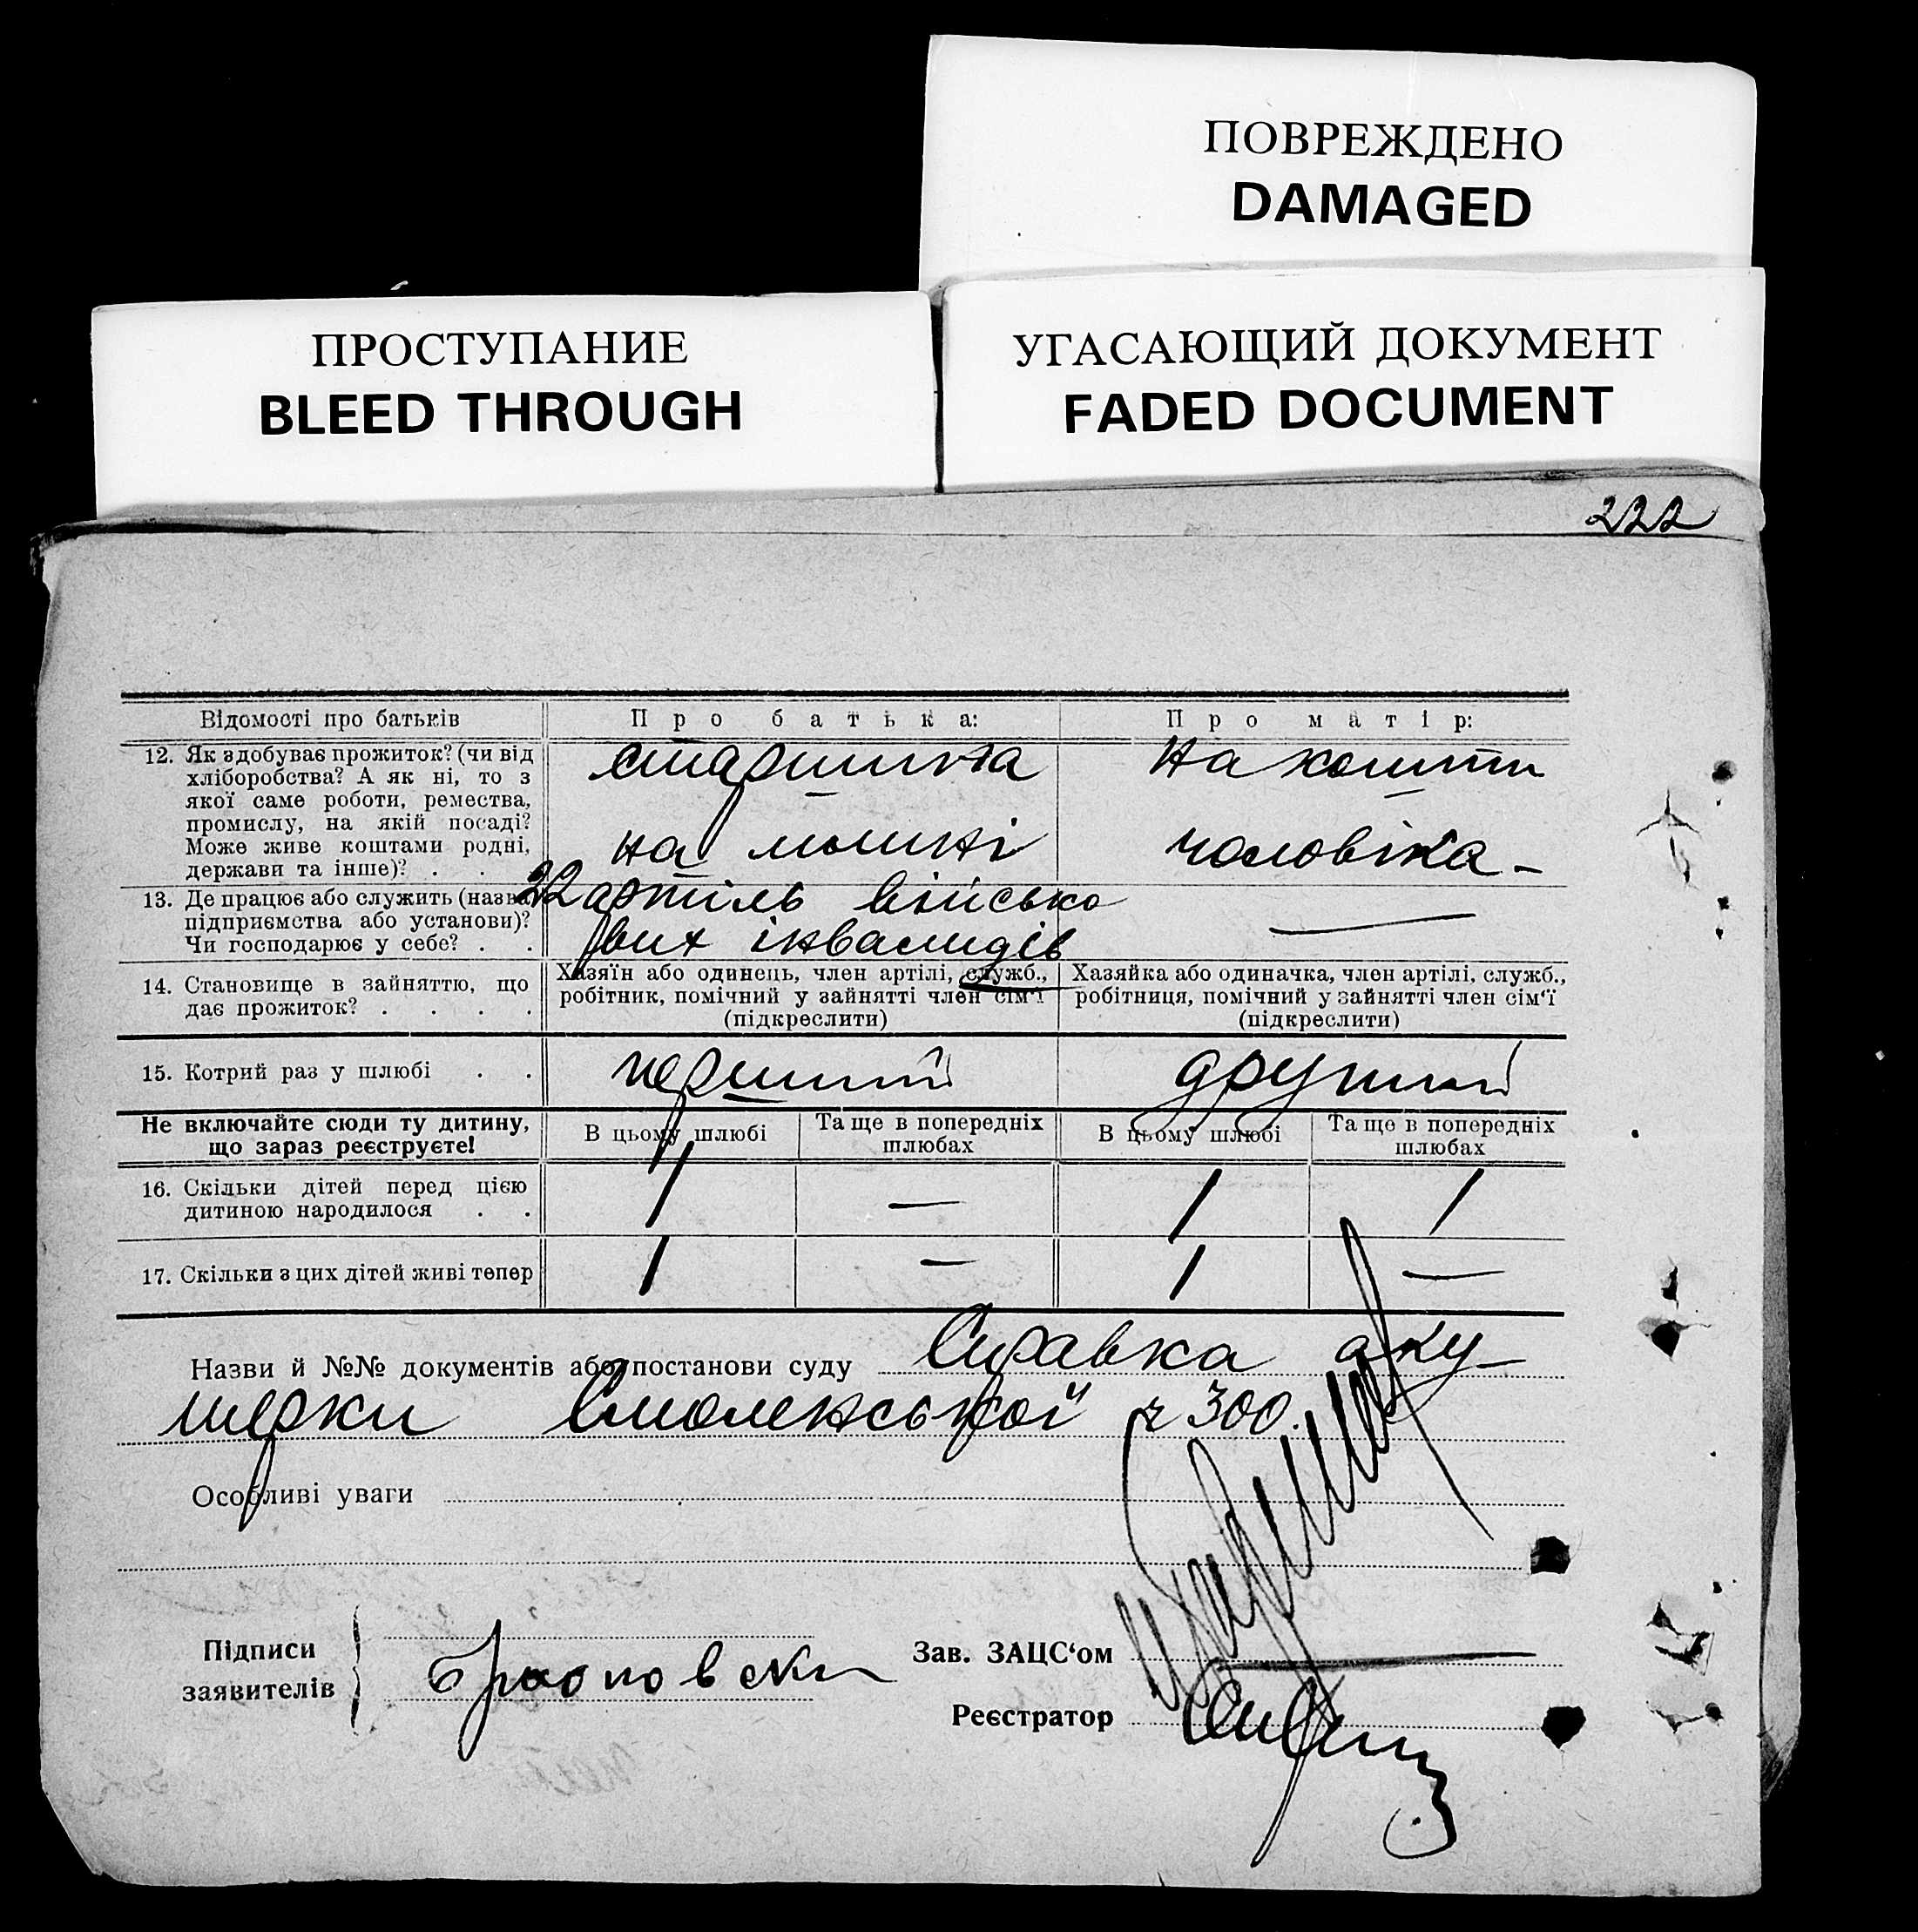 ПОВРЕЖДЕНО
DAMAGED
ПРОСТУПАНИЕ
BLEED THROUGH
УГАСАЮЩИЙ ДОКУМЕНТ
FADED DOCUMENT
222
Відомості про батьків
Про батька:
Про матір:
12. Як здобуває прожиток? (чи від
хліборобства? А як ні, то з
якої саме роботи, ремества,
промислу, на якій посаді?
Може живе коштами родні,
держави та інше)? . .
старшина
на
На кошти
чоловіка –
13. Де працює або служить (назва
підприємства або установи)?
Чи господарює у себе? . .
22 артіль військо
вих інвалидів
—
14. Становище в зайняттю, що
дає прожиток? . . . .
Хазяїн або одинець, член артілі, служб.,
робітник, помічний у зайнятті член сім'ї
(підкреслити)
Хазяйка або одиначка, член артілі, служб.,
робітниця, помічний у зайнятті член сім'ї
(підкреслити)
15. Котрий раз у шлюбі . .
перший
другий
Не включайте сюди ту дитину,
що зараз реєструєте!
В цьому шлюбі
Та ще в попередніх
шлюбах
В цьому шлюбі
Та ще в попередніх
шлюбах
16. Скільки дітей перед цією
дитиною народилося . .
1 — 1 1
17. Скільки з цих дітей живі тепер
1 — 1 —
Назви й №№ документів або постанови суду Справка аку
шерки Смоленської ч 300.
Особливі уваги
Підписи
заявителів
Зав. ЗАЦС'ом
Реєстратор